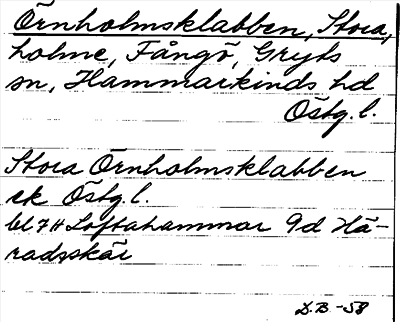 Örnholmsklabben, Stora,
holme, Fångö, Gryts
sn, Hammarkinds hd
Östg. l.
Stora Örnholmsklabben
ek Östg. l.
bl 7H Loftahammar 9d Hä-
radsskär
D.B. -58